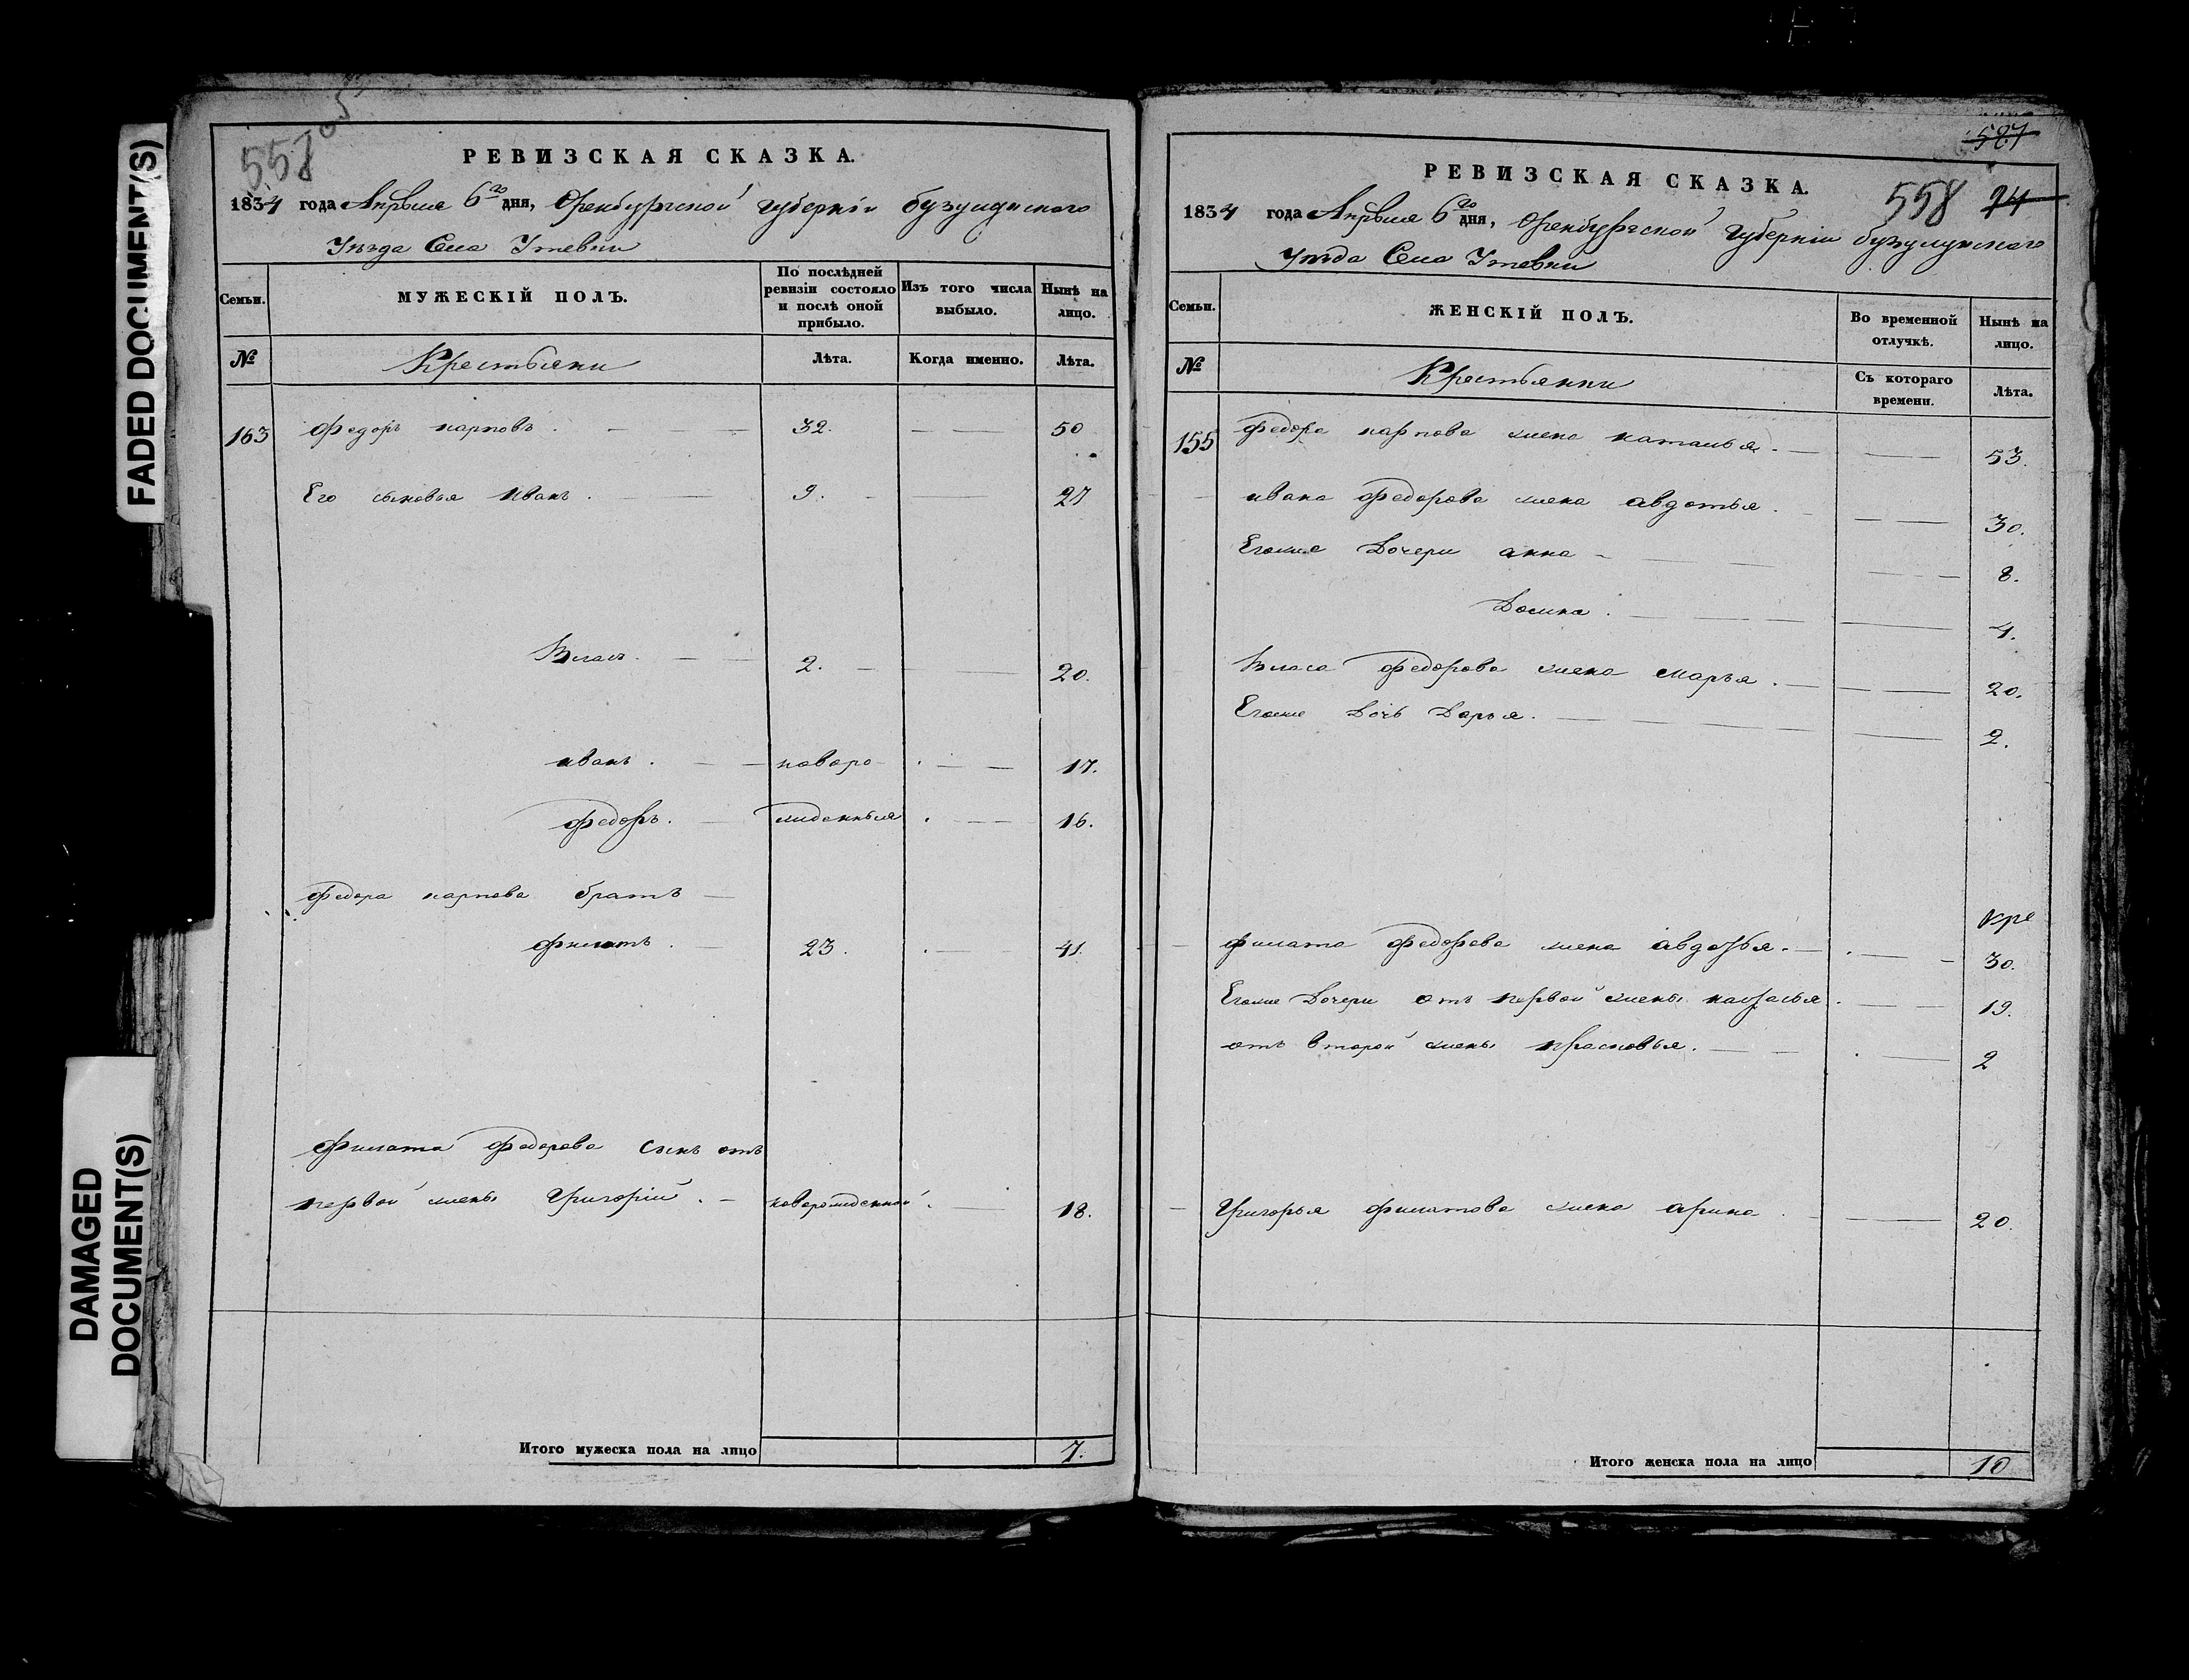 FADED DOCUMENT(S)
DAMAGED
DOCUMENT(S)
557
РЕВИЗСКАЯ СКАЗКА.
1834 года Апрѣля 6го дня, Оренбургской губерніи бузулукского
Уѣзда Села Утевки
Семьи.
МУЖЕСКІЙ ПОЛЪ.
По послѣдней ревизіи состояло и послѣ оной прибыло.
Изъ того числа выбыло.
Нынѣ на лицо.
№
Крестьяни
Лѣта.
Когда именно.
Лѣта.
163 Федоръ карповъ. 32. 50
Его сыновья иванъ. 9. 27
Власъ. 2. 20.
иванъ. новоро 17.
федоръ. жденныя 16.
федора карпова братъ
филатъ. 23. 41.
филата федорова сынъ отъ
первой жены Григорій. новорожденной 18.
Итого мужеска пола на лицо 7.
587
РЕВИЗСКАЯ СКАЗКА.
558 74
1834 года Апрѣля 6го дня, Оренбургской Губерніи бузулукского
Уѣзда Села Утевки
Семьи.
ЖЕНСКІЙ ПОЛЪ.
Во временной отлучкѣ.
Нынѣ на лицо.
№
Крестьянки
Съ котораго времени.
Лѣта.
155 федора карпова жена наталья. 53.
ивана федорова жена авдотья. 30.
Егоже Дочери анна 8.
Домна. 4.
Власа федорова жена марья. 20.
Егоже Дочь Дарья. 2.
филата федорова жена авдотья. 30.
Егоже Дочери отъ первой жены настасья. 19.
отъ второй жены прасковья. 2
Григорья филатова жена арина. 20.
Итого женска пола на лицо 10